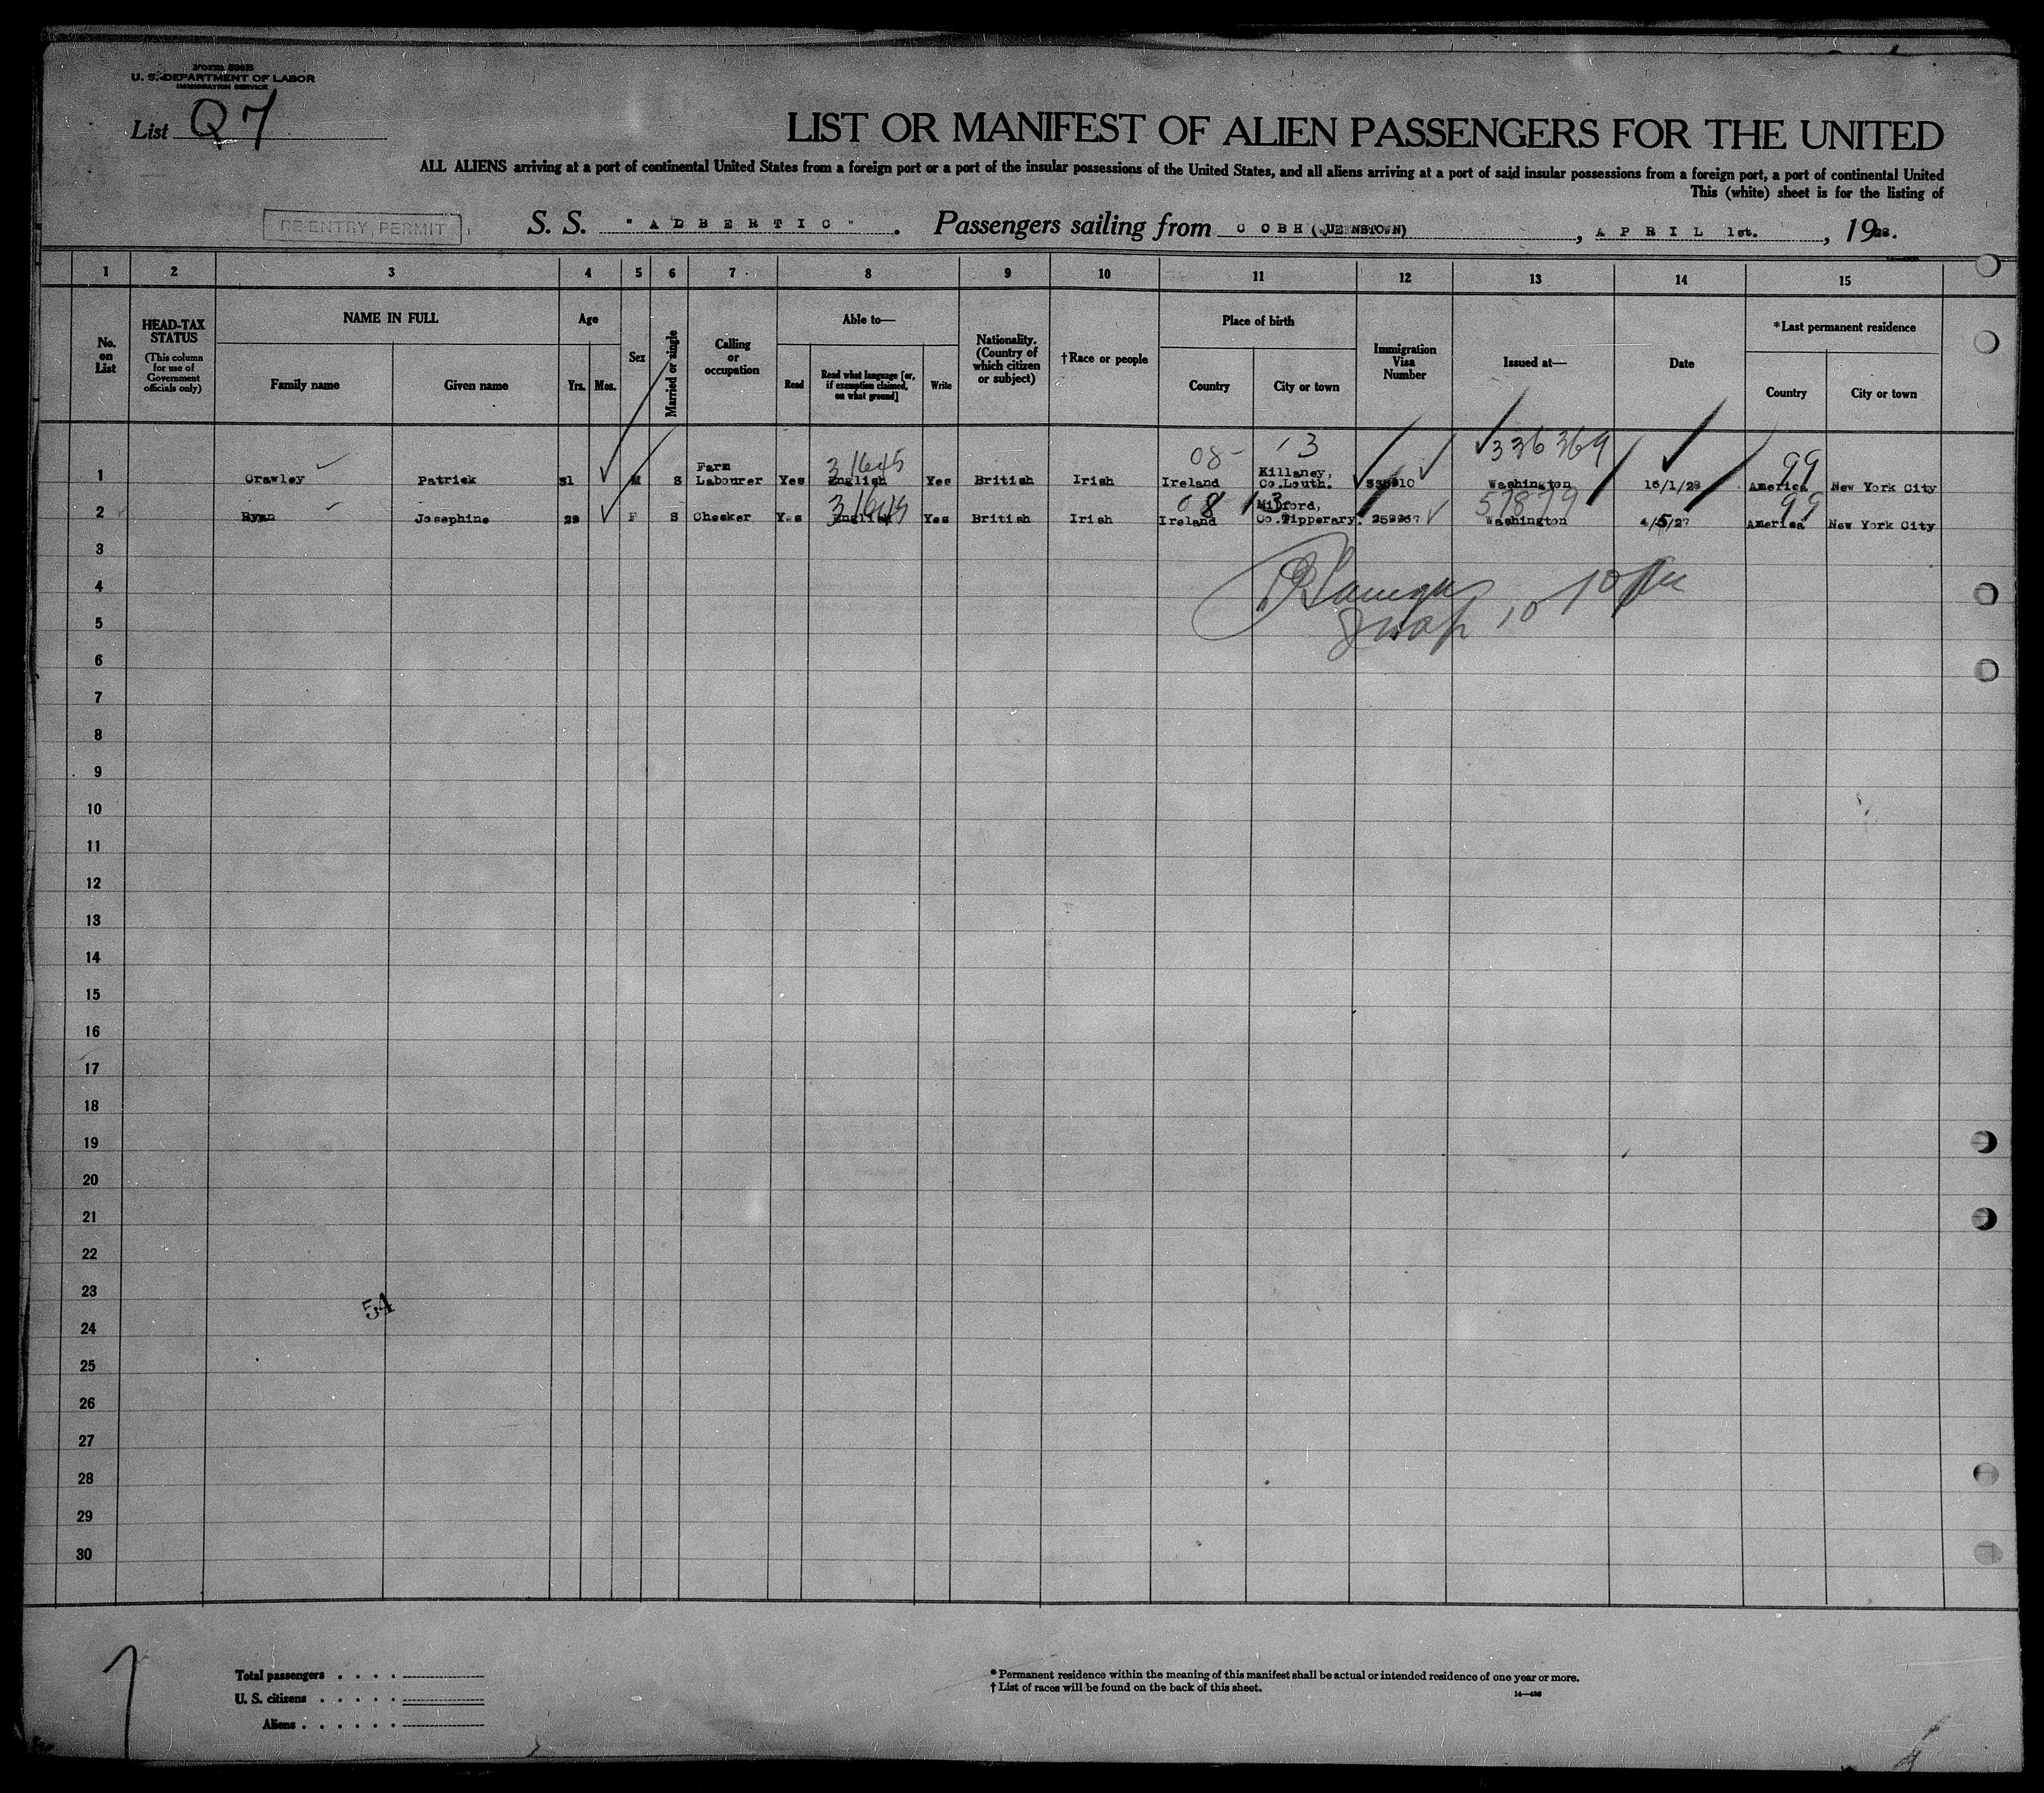 Form 500B
U. S. DEPARTMENT OF LABOR
IMMIGRATION SERVICE
List Q7
LIST OR MANIFEST OF ALIEN PASSENGERS FOR THE UNITED
ALL ALIENS arriving at a port of continental United States from a foreign port or a port of the insular possessions of the United States, and all aliens arriving at a port of said insular possessions from a foreign port, a port of continental United
This (white) sheet is for the listing of
RE-ENTRY PERMIT
S. S. "ADBERTIC". Passengers sailing from COBH (QUEENSTOWN), APRIL 1st., 1928.
1 2 3 4 5 6 7 8 9 10 11 12 13 14 15
No. on List
HEAD-TAX STATUS
(This column for use of Government officials only)
NAME IN FULL
Family name
Given name
Age
Yrs. Mos.
Sex
Married or single
Calling or occupation
Able to—
Read
Read what language [or, if exemption claimed, on what ground]
Write
Nationality. (Country of which citizen or subject)
†Race or people
Place of birth
Country
City or town
Immigration Visa Number
Issued at—
Date
*Last permanent residence
Country
City or town
31645 08- 13 336369 99
1 Crawley Patrick 31 M S Farm Labourer Yes English Yes British Irish Ireland Killaney, Co.Louth. Washington 16/1/28 America New York City
31645 08 13 57879 99
2 Ryan Josephine 29 F S Checker Yes English Yes British Irish Ireland Milford, Co.Tipperary. Washington 4/5/27 America New York City
3
4
5
6
7
8
9
10
11
12
13
14
15
16
17
18
19
20
21
22
23
54
24
25
26
27
28
29
30
Total passengers . . . .
U. S. citizens . . . . .
Aliens . . . . . .
* Permanent residence within the meaning of this manifest shall be actual or intended residence of one year or more.
† List of races will be found on the back of this sheet.